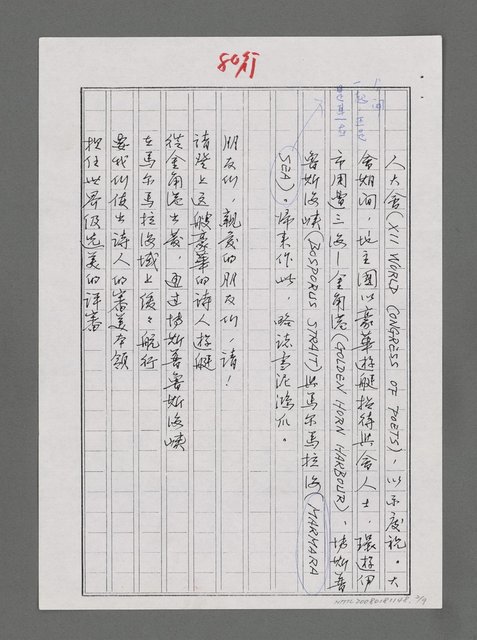 80行
人大會(XII WORLD CONGRESS OF POETS)，以示慶祝。大
會期間，地主國以豪華遊艇招待與會人士，環遊伊
市周遭三海—金角港(GOLDEN HORN HARBOUR)，博斯普
魯斯海峽(BOSPORUS STRAIT)與馬爾馬拉海(MARMARA
SEA)。歸來作此，略誌雪泥鴻爪。
朋友們，親愛的朋友們，請！
請登上這艘豪華的詩人遊艇
從金角港出發，通過博斯普魯斯海峽
在馬爾馬拉海域上緩緩航行
要我們使出詩人的審美本領
擔任世界級完美的評審
HTML20080181148
2/9